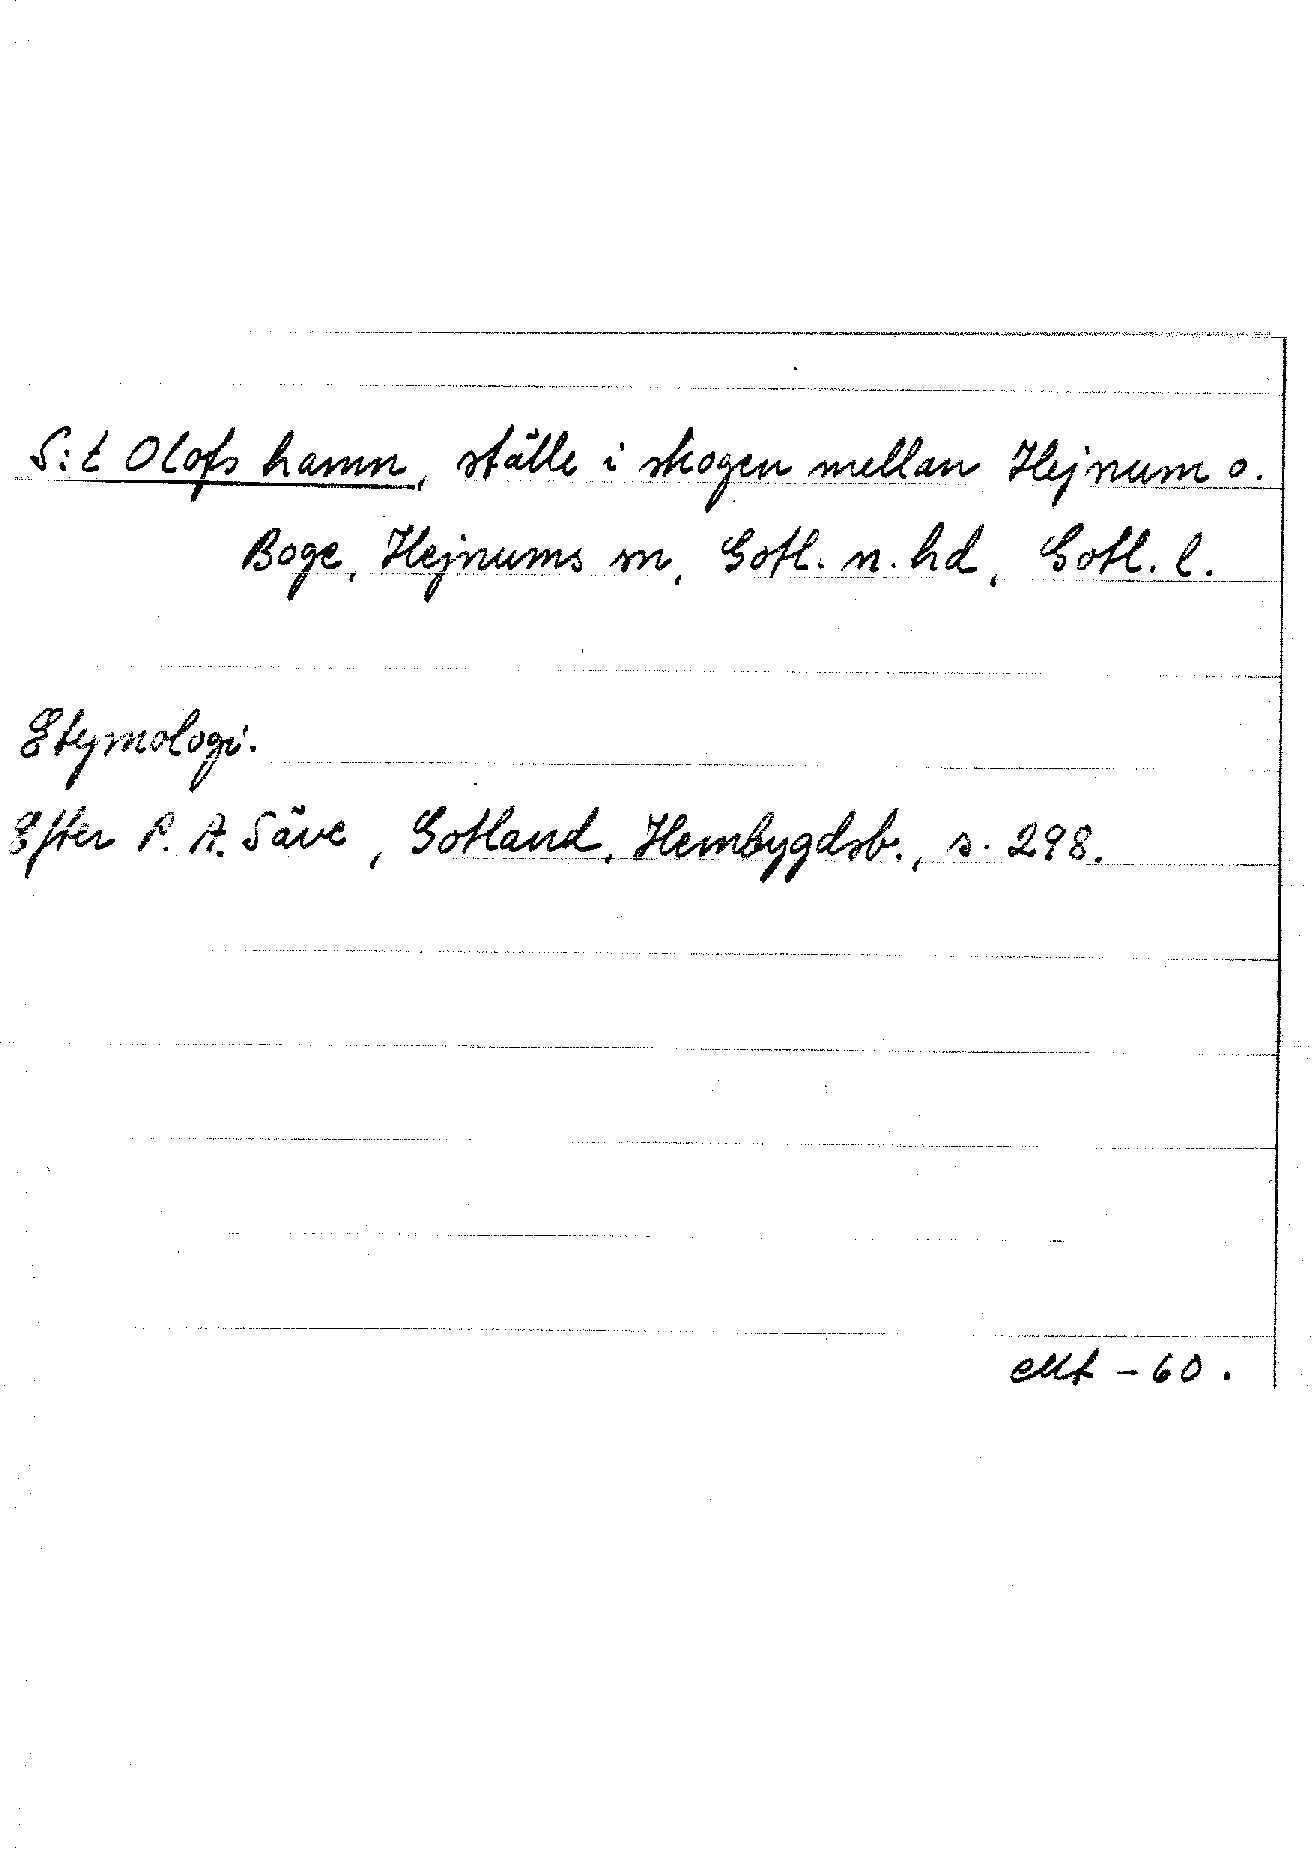 S:t Olofs hamn, ställe i skogen mellan Hejnum o.
Boge, Hejnums sn, Gotl. n. hd, Gotl. l.
Etymologi.
Efter P. A. Säve, Gotland, Hembygdsb., s. 298.
-60.